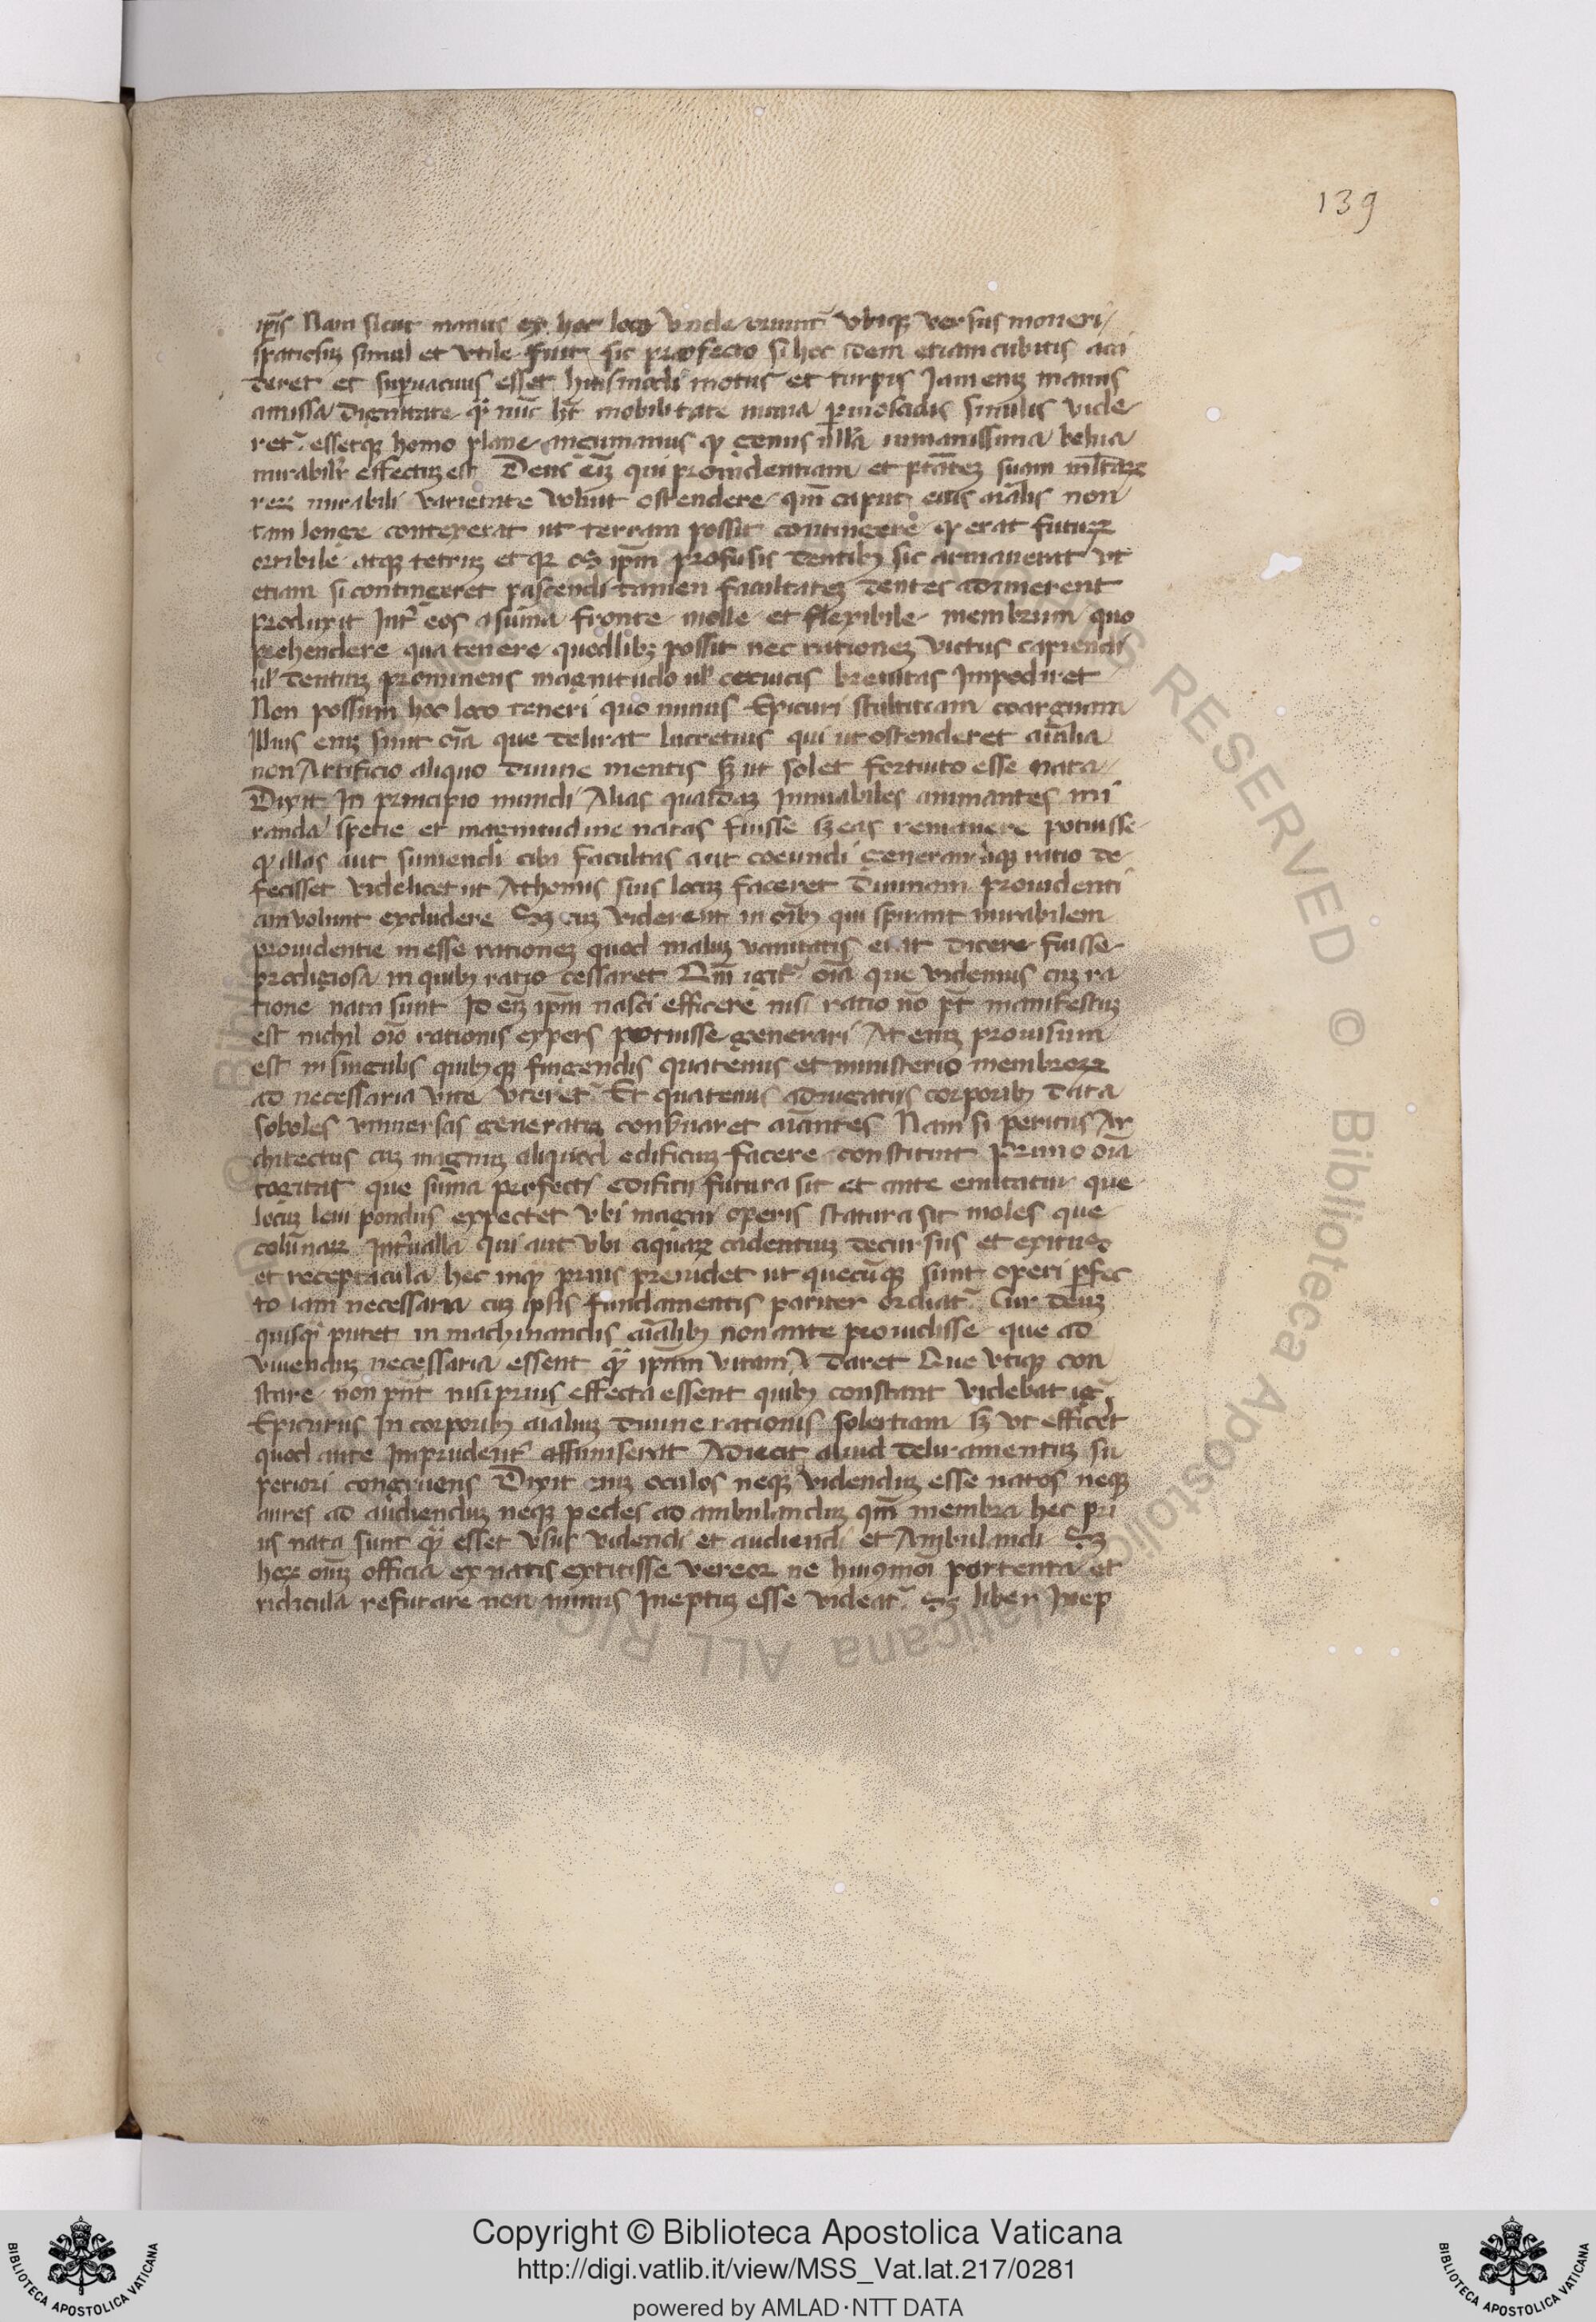 139
ip̄is Nam sicut manus ex hoc loco vnde oriunt᷑ vbiqꝫ versus moueri
spatiosuꝫ simul et vtile fuit sic profecto si hoc idem etiam cubitis acci
deret et supuacuus esset huiusmodi motus et turpis Jam eniꝫ manus
amissa dignitate q̄ nūc ht̄ mobilitate nimia ꝑmoscidis similis vide
ret᷑ essetqꝫ homo plane anguimanus qꝫ genus illa inmanissima belua
mirabilr̄ effectuꝫ est Deus eīꝫ qui prouidentiam et ptāteꝫ suam mltaꝝ
reꝝ mirabili varietate voluit ostendere qm̄ caput eius aīalis non
tam longe contexerat ut terram possit contingere qꝫ erat futuꝝ
orribile atqꝫ tetruꝫ et qꝫ os ip̄m profusis dentibꝫ sic armauerat vt
etiam si contingeret pascendi tamen facultateꝫ dentes adimerent
produxit Int̄ eos a sūma fronte molle et flexibile membrum quo
prehendere qua tenere quodlibꝫ possit nec rationeꝫ victus capiendi
ul̄ dentiuꝫ prominens magnitudo ul̄ ceruicis breuitas Impediret
Non possum hoc loco teneri quo minus Epicuri stultitiam coarguam
Illius eniꝫ sunt oīa que delirat lucretius qui ut ostenderet aīalia
non Artificio aliquo diuine mentis sꝫ ut solet fortuito esse nata
Dixit In principio mundi Alias quasdaꝫ Innuabiles animantes mi
randa spetie et magnitudine natas fuisse sꝫ eas remanere potuisse
qꝫ illas aut sumendi cibi facultas aut coeundi generandiqꝫ ratio de
fecisset videlicet ut Athomis suis locuꝫ faceret diuinam prouidenti
am volunt excludere Sꝫ cuꝫ viderent in oībꝫ qui spirant mirabilem
prouidentie inesse rationeꝫ quod maluꝫ vanitatis erat dicere fuisse
prodigiosa in quibꝫ ratio cessaret Qm̄ igit᷑ oīa que videmus cuꝫ ra
tione nata sunt Id eīꝫ ip̄m nasci efficere nisi ratio nō pt̄ manifestuꝫ
est nichil oīo rationis expers potuisse generari At eniꝫ prouisum
est in singulis quibꝫqꝫ fingendis quatenus et ministerio membroꝝ
ad necessaria vite vteret᷑ Et quatenus adiugatis corporibꝫ data
soboles vniuersas generatiꝫ conseruaret aīantes Nam si peritus Ar
chitectus cuꝫ magnuꝫ aliquod edificiuꝫ facere constituit Primo oīa
cogitat que sūma perfecti edificij futura sit et ante emitatur que
locuꝫ leui pondus expectet vbi magni operis statura sit moles que
colūnaꝝ Int̄ualla qui aut vbi aquaꝝ cadentiuꝫ decursus et exitus
et receptacula hec inqꝫ prius preuidet ut quecūqꝫ sunt operi ꝑfec
to iam necessaria cuꝫ ipsis fundamentis pariter ordiat᷑ Cur deuꝫ
quisqꝫ putet in machinandis aīalibꝫ non ante prouidisse que ad
viuenduꝫ necessaria essent qꝫ ipam vitam daret Que vtiqꝫ con
stare non pn̄t nisi prius effecta essent quibꝫ constant videbat ig᷑
Epicurus In corporibꝫ aīaliuꝫ diuine rationis solertiam sꝫ vt efficeret
quod ante Imprudent̄ assumserat Adiecit aliud deliramentuꝫ su
periori congruens Dixit eniꝫ oculos neqꝫ videnduꝫ esse natos neqꝫ
aures ad audienduꝫ neqꝫ pedes ad ambulanduꝫ qm̄ membra hec pri
us nata sunt qꝫ esset vsus videndi et audiendi et Ambulandi Sꝫ
hoꝝ oīuꝫ officia ex natis extitisse vereor ne huiꝰmōi portenta et
ridicula refutare non minus Ineptuꝫ esse videat᷑ Sꝫ liber Inep
© Biblioteca Apostolica Vaticana ALL RIGHTS RESERVED
Copyright © Biblioteca Apostolica Vaticana
http://digi.vatlib.it/view/MSS_Vat.lat.217/0281
powered by AMLAD·NTT DATA
BIBLIOTECA APOSTOLICA VATICANA
BIBLIOTECA APOSTOLICA VATICANA